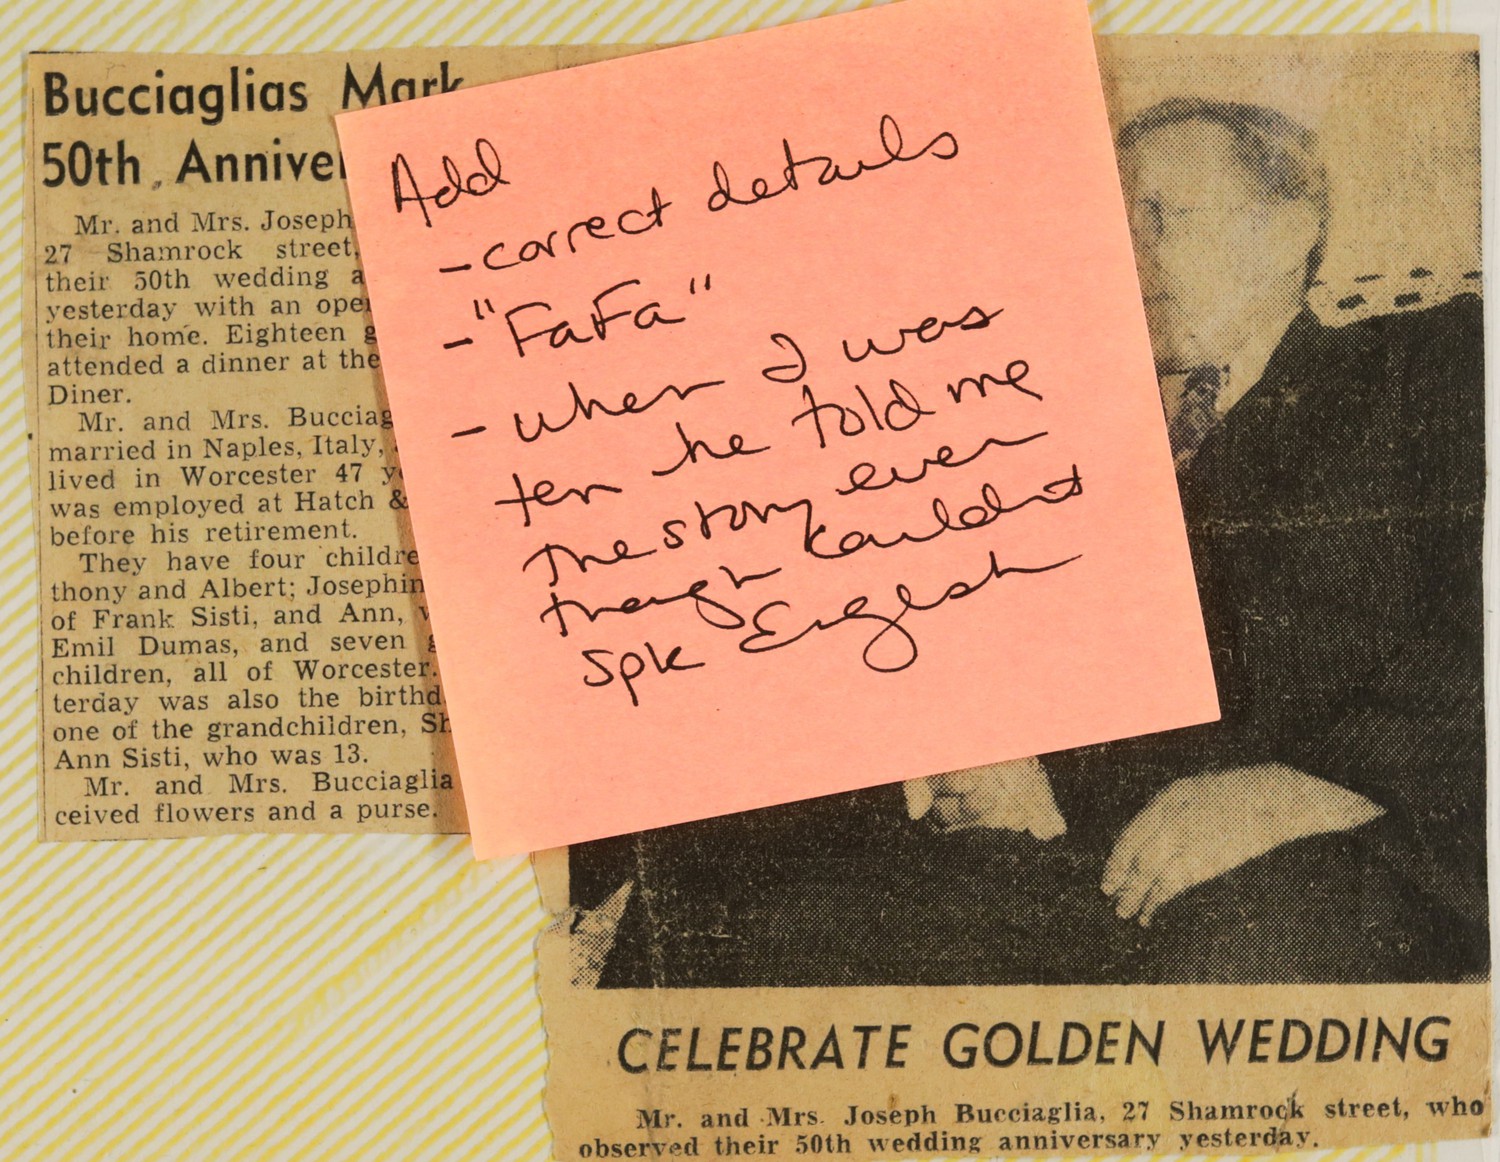 Bucciaglias Mark
50th Anniver
Mr. and Mrs. Joseph
27 Shamrock street,
their 50th wedding a
yesterday with an ope
their home. Eighteen g
attended a dinner at the
Diner.
Mr. and Mrs. Bucciag
married in Naples, Italy,
lived in Worcester 47 y
was employed at Hatch &
before his retirement.
They have four childre
thony and Albert; Josephin
of Frank Sisti, and Ann, w
Emil Dumas, and seven g
children, all of Worcester.
terday was also the birthd
one of the grandchildren, Sh
Ann Sisti, who was 13.
Mr. and Mrs. Bucciaglia
ceived flowers and a purse.
Add
- correct details
- "FaFa"
- when I was
ten he told me
the story even
though couldnt
spk English
CELEBRATE GOLDEN WEDDING
Mr. and Mrs. Joseph Bucciaglia, 27 Shamrock street, who
observed their 50th wedding anniversary yesterday.